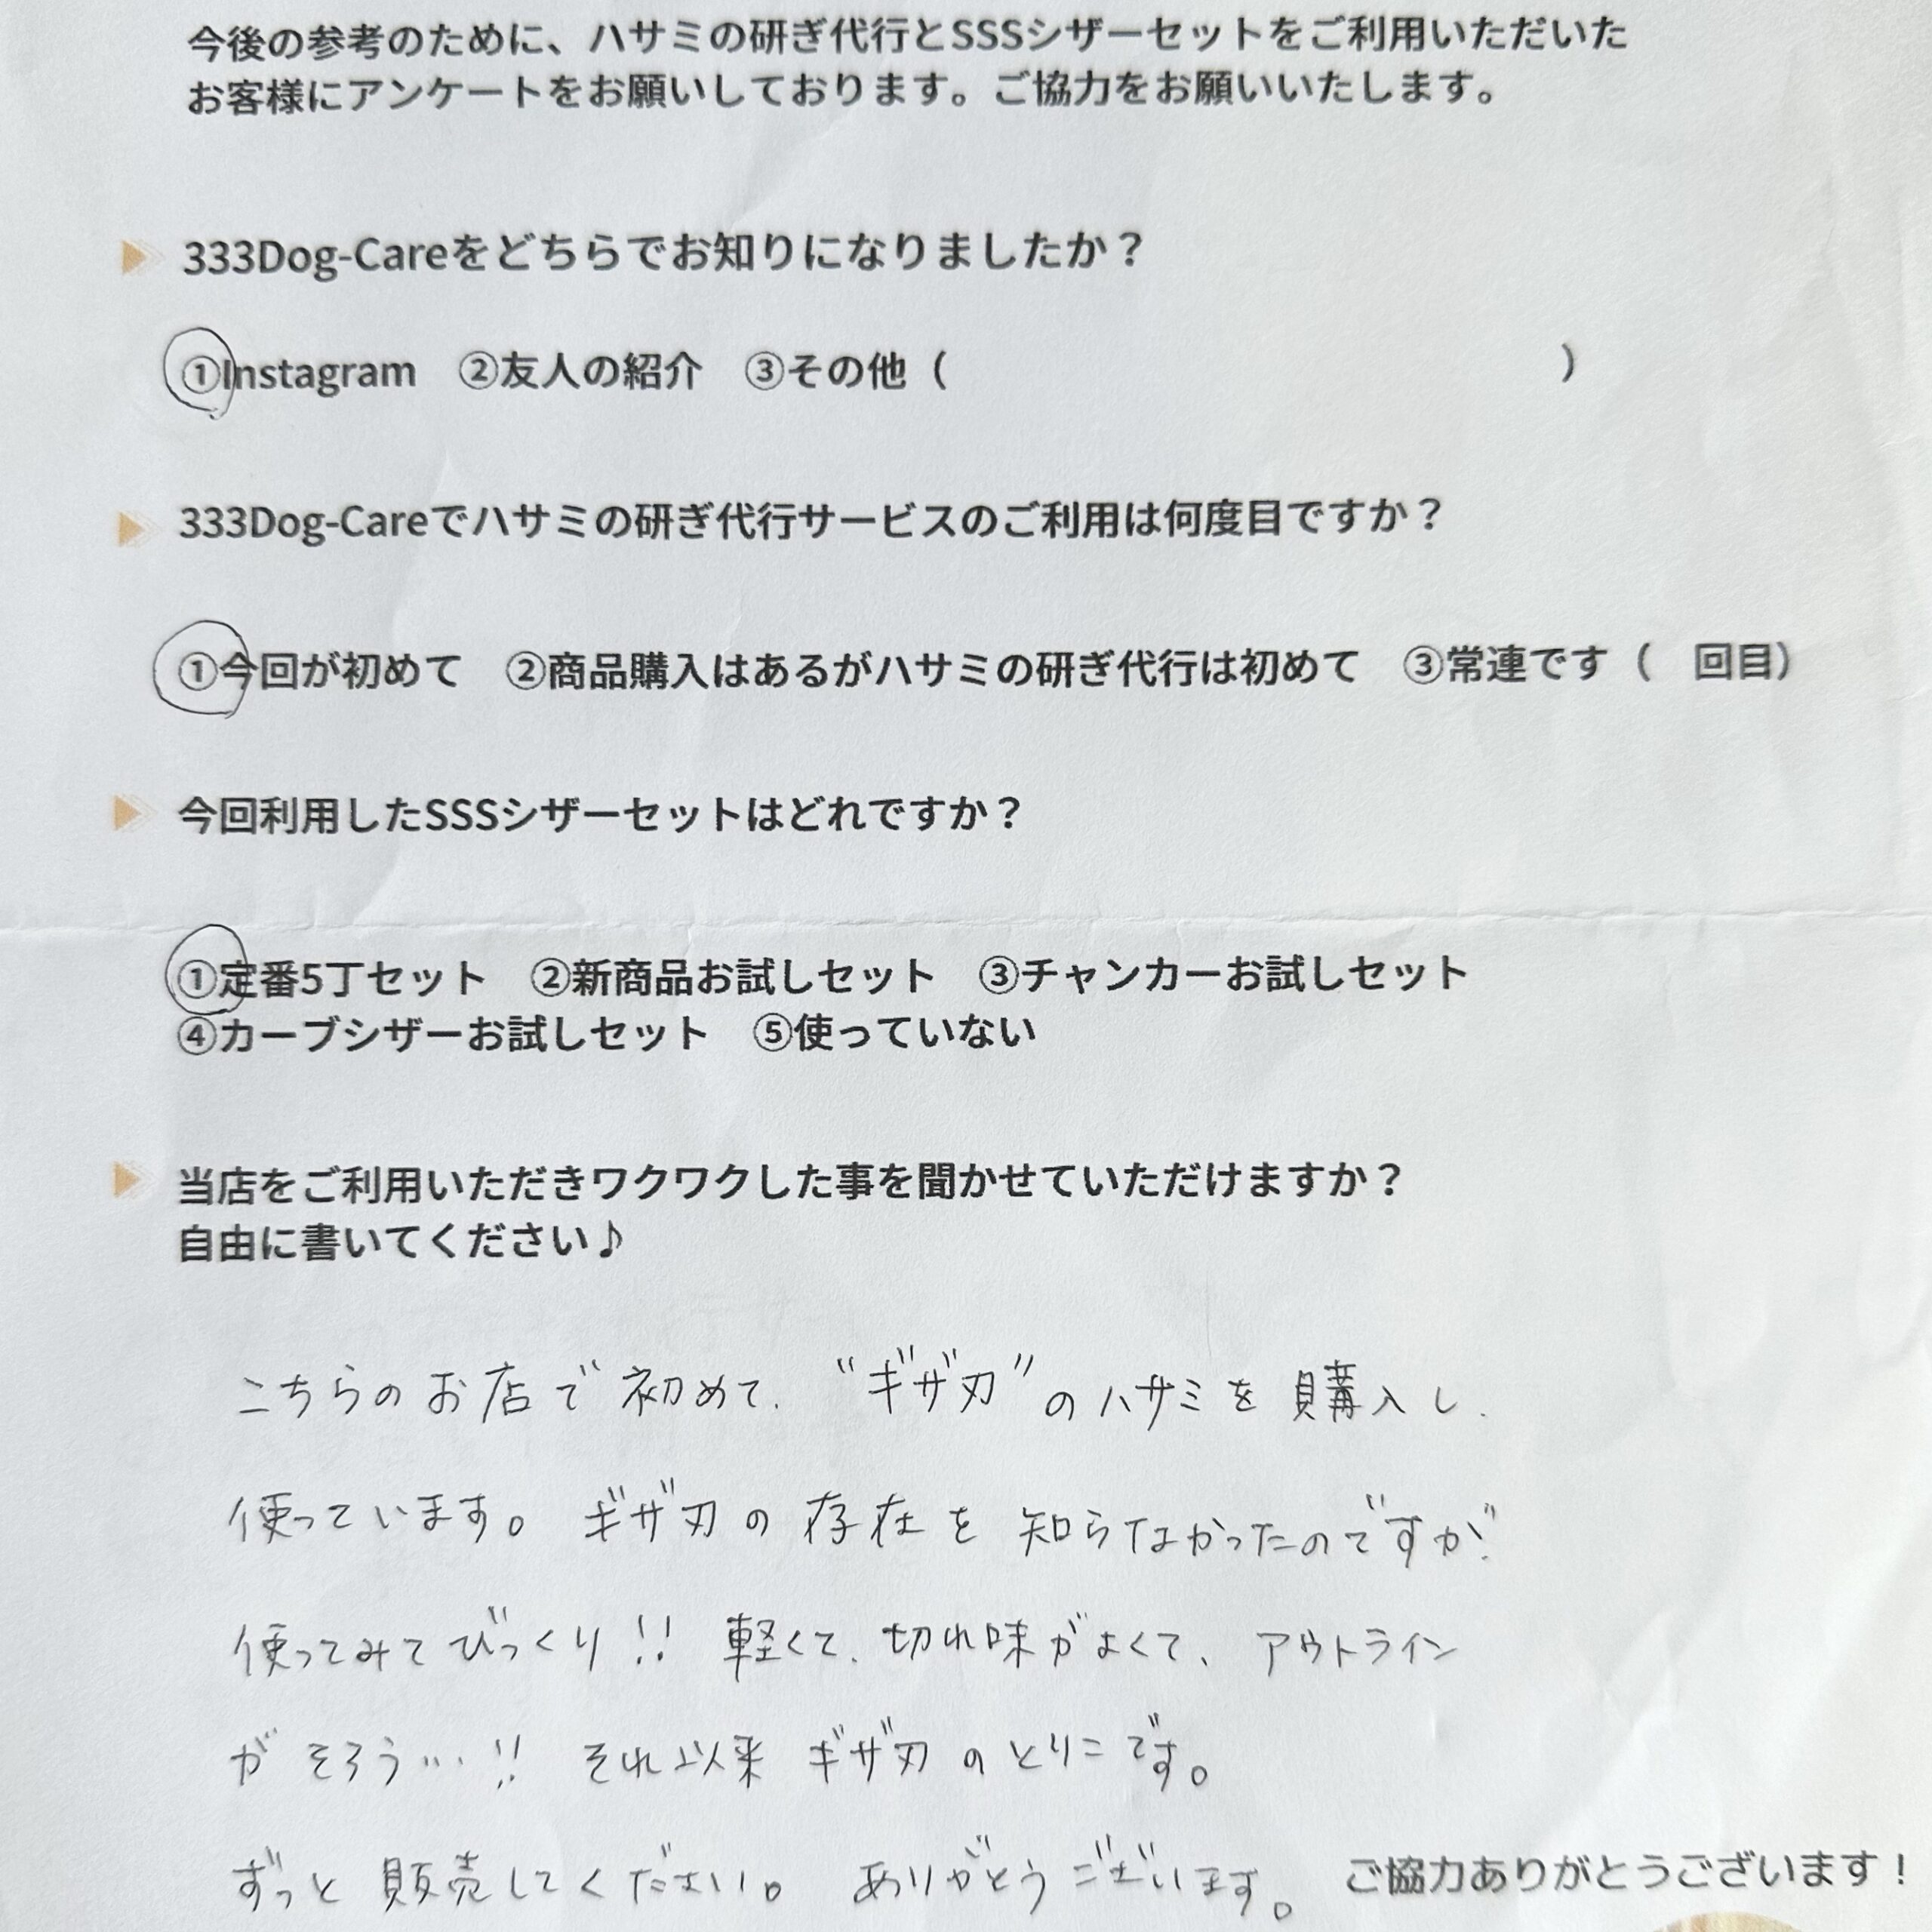 今後の参考のために、ハサミの研ぎ代行とSSSシザーセットをご利用いただいた
お客様にアンケートをお願いしております。ご協力をお願いいたします。
333Dog-Careをどちらでお知りになりましたか？
①Instagram　②友人の紹介　③その他（　　　　　　　　　　　　　　　）
333Dog-Careでハサミの研ぎ代行サービスのご利用は何度目ですか？
①今回が初めて　②商品購入はあるがハサミの研ぎ代行は初めて　③常連です（　回目）
今回利用したSSSシザーセットはどれですか？
①定番5丁セット　②新商品お試しセット　③チャンカーお試しセット
④カーブシザーお試しセット　⑤使っていない
当店をご利用いただきワクワクした事を聞かせていただけますか？
自由に書いてください♪
こちらのお店で初めて、“ギザ刃”のハサミを購入し、
使っています。ギザ刃の存在を知らなかったのですが、
使ってみてびっくり!! 軽くて、切れ味がよくて、アウトライン
がそろう…!! それ以来ギザ刃のとりこです。
ずっと販売してください。ありがとうございます。
ご協力ありがとうございます！